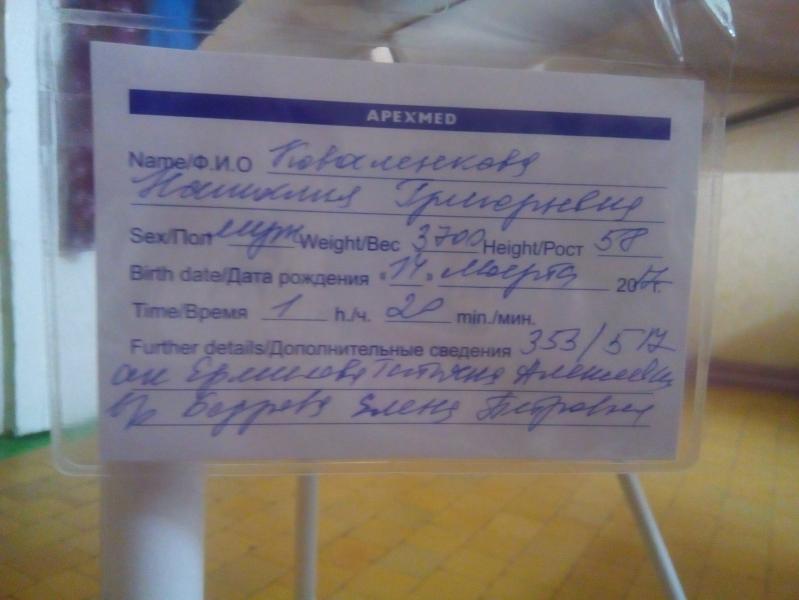 APEXMED
Name/Ф.И.О Коваленкова
Наталия Григорьевна
Sex/Пол муж Weight/Вес 3700 Height/Рост 58
Birth date/Дата рождения "14" Марта 2017г.
Time/Время 1 h./ч. 20 min./мин.
Further details/Дополнительные сведения 353/517
ак Ермилова Татьяна Алексеевна
вр Бодрова Елена Петровна